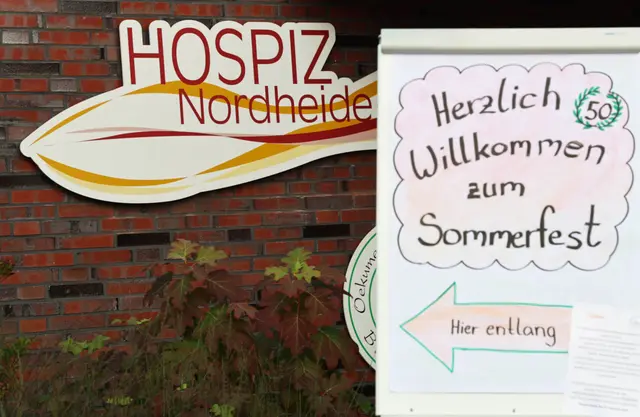 HOSPIZ
Nordheide
Herzlich
50
Willkommen
zum
Sommerfest
Hier entlang